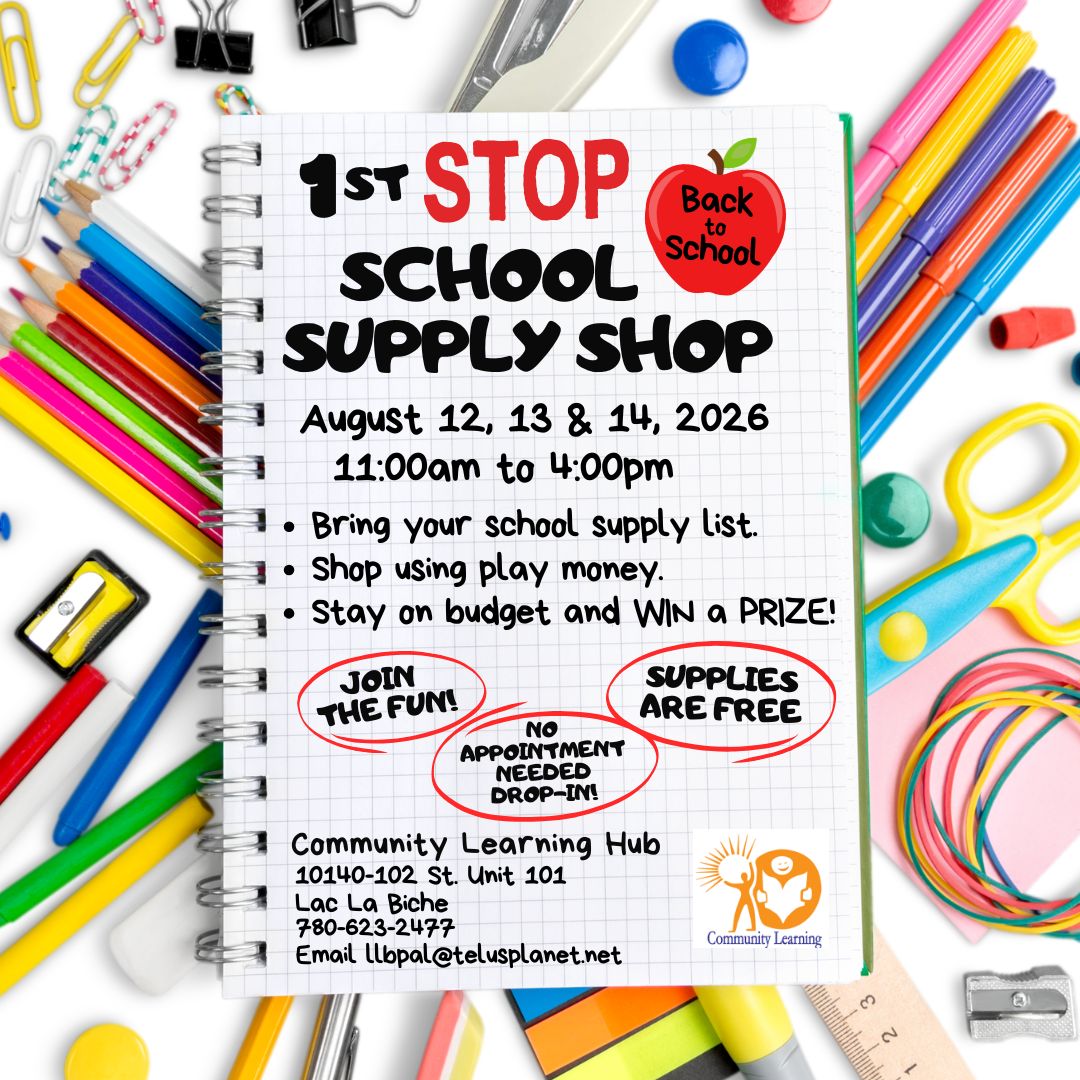 1ST STOP
Back
to
School
SCHOOL
SUPPLY SHOP
August 12, 13 & 14, 2026
11:00am to 4:00pm
• Bring your school supply list.
• Shop using play money.
• Stay on budget and WIN a PRIZE!
JOIN
THE FUN!
SUPPLIES
ARE FREE
NO
APPOINTMENT
NEEDED
DROP-IN!
Community Learning Hub
10140-102 St. Unit 101
Lac La Biche
780-623-2477
Email llbpal@telusplanet.net
Community Learning
1 2 3